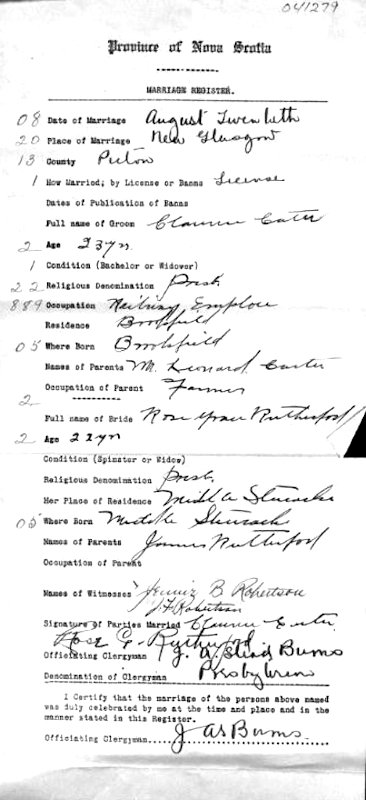 041279
Province of Nova Scotia
MARRIAGE REGISTER.
08 Date of Marriage August Twentieth
20 Place of Marriage New Glasgow
13 County Pictou
1 How Married; by License or Banns License
Dates of Publication of Banns
Full name of Groom Clarence Carter
2 Age 23 yrs
1 Condition (Bachelor or Widower)
22 Religious Denomination Presb.
889 Occupation Railway Employee
Residence Brookfield
05 Where Born Brookfield
Names of Parents M. Leonard Carter
Occupation of Parent Farmer
2
Full name of Bride Rose Grace Rutherford
2 Age 22 yrs
Condition (Spinster or Widow)
Religious Denomination Presb.
Her Place of Residence Middle Stewiacke
05 Where Born Middle Stewiacke
Names of Parents James Rutherford
Occupation of Parent
Names of Witnesses Jennie B Robertson
J F Robertson
Signature of Parties Married Clarence Carter
Rose G. Rutherford
Officiating Clergyman J. A. Burns
Denomination of Clergyman Presbyterian
I Certify that the marriage of the persons above named
was duly celebrated by me at the time and place and in the
manner stated in this Register.
Officiating Clergyman J A S Burns